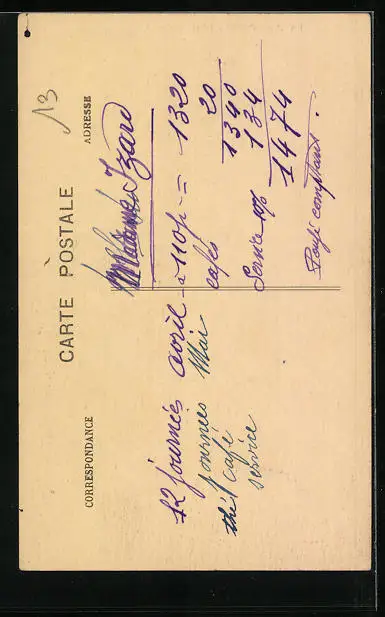 CARTE POSTALE
CORRESPONDANCE
ADRESSE
13
Madame Izard
12 journées avril à 110f = 1320
journées Mai
cafés 20
1340
thé 1 café
service
Service 10% 134
1474
Pour comptant.